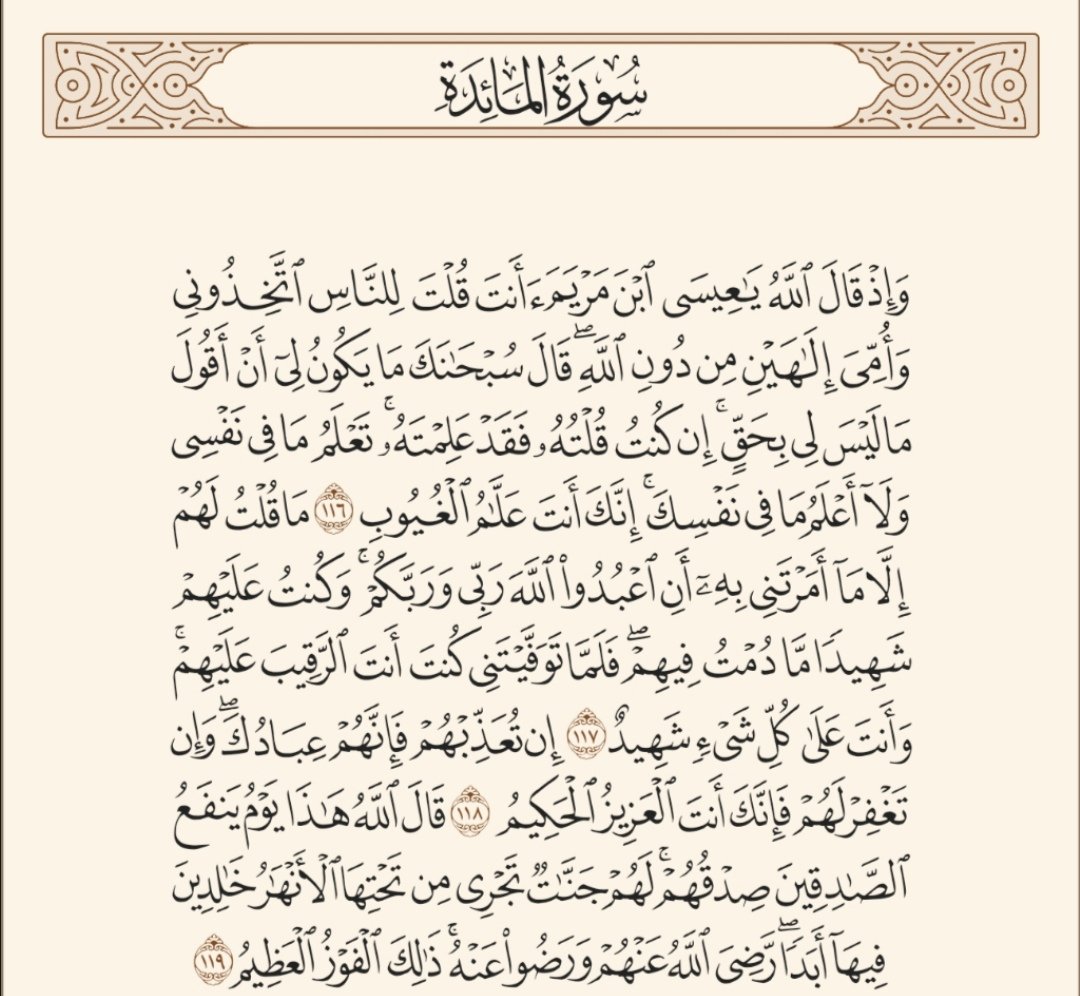 سُورَةُ المَائِدَةِ
وَإِذۡ قَالَ ٱللَّهُ يَٰعِيسَى ٱبۡنَ مَرۡيَمَ ءَأَنتَ قُلۡتَ لِلنَّاسِ ٱتَّخِذُونِي
وَأُمِّيَ إِلَٰهَيۡنِ مِن دُونِ ٱللَّهِۖ قَالَ سُبۡحَٰنَكَ مَا يَكُونُ لِيٓ أَنۡ أَقُولَ
مَا لَيۡسَ لِي بِحَقٍّۚ إِن كُنتُ قُلۡتُهُۥ فَقَدۡ عَلِمۡتَهُۥۚ تَعۡلَمُ مَا فِي نَفۡسِي
وَلَآ أَعۡلَمُ مَا فِي نَفۡسِكَۚ إِنَّكَ أَنتَ عَلَّٰمُ ٱلۡغُيُوبِ ١١٦ مَا قُلۡتُ لَهُمۡ
إِلَّا مَآ أَمَرۡتَنِي بِهِۦٓ أَنِ ٱعۡبُدُواْ ٱللَّهَ رَبِّي وَرَبَّكُمۡۚ وَكُنتُ عَلَيۡهِمۡ
شَهِيدٗا مَّا دُمۡتُ فِيهِمۡۖ فَلَمَّا تَوَفَّيۡتَنِي كُنتَ أَنتَ ٱلرَّقِيبَ عَلَيۡهِمۡۚ
وَأَنتَ عَلَىٰ كُلِّ شَيۡءٖ شَهِيدٌ ١١٧ إِن تُعَذِّبۡهُمۡ فَإِنَّهُمۡ عِبَادُكَۖ وَإِن
تَغۡفِرۡ لَهُمۡ فَإِنَّكَ أَنتَ ٱلۡعَزِيزُ ٱلۡحَكِيمُ ١١٨ قَالَ ٱللَّهُ هَٰذَا يَوۡمُ يَنفَعُ
ٱلصَّٰدِقِينَ صِدۡقُهُمۡۚ لَهُمۡ جَنَّٰتٞ تَجۡرِي مِن تَحۡتِهَا ٱلۡأَنۡهَٰرُ خَٰلِدِينَ
فِيهَآ أَبَدٗاۖ رَّضِيَ ٱللَّهُ عَنۡهُمۡ وَرَضُواْ عَنۡهُۚ ذَٰلِكَ ٱلۡفَوۡزُ ٱلۡعَظِيمُ ١١٩